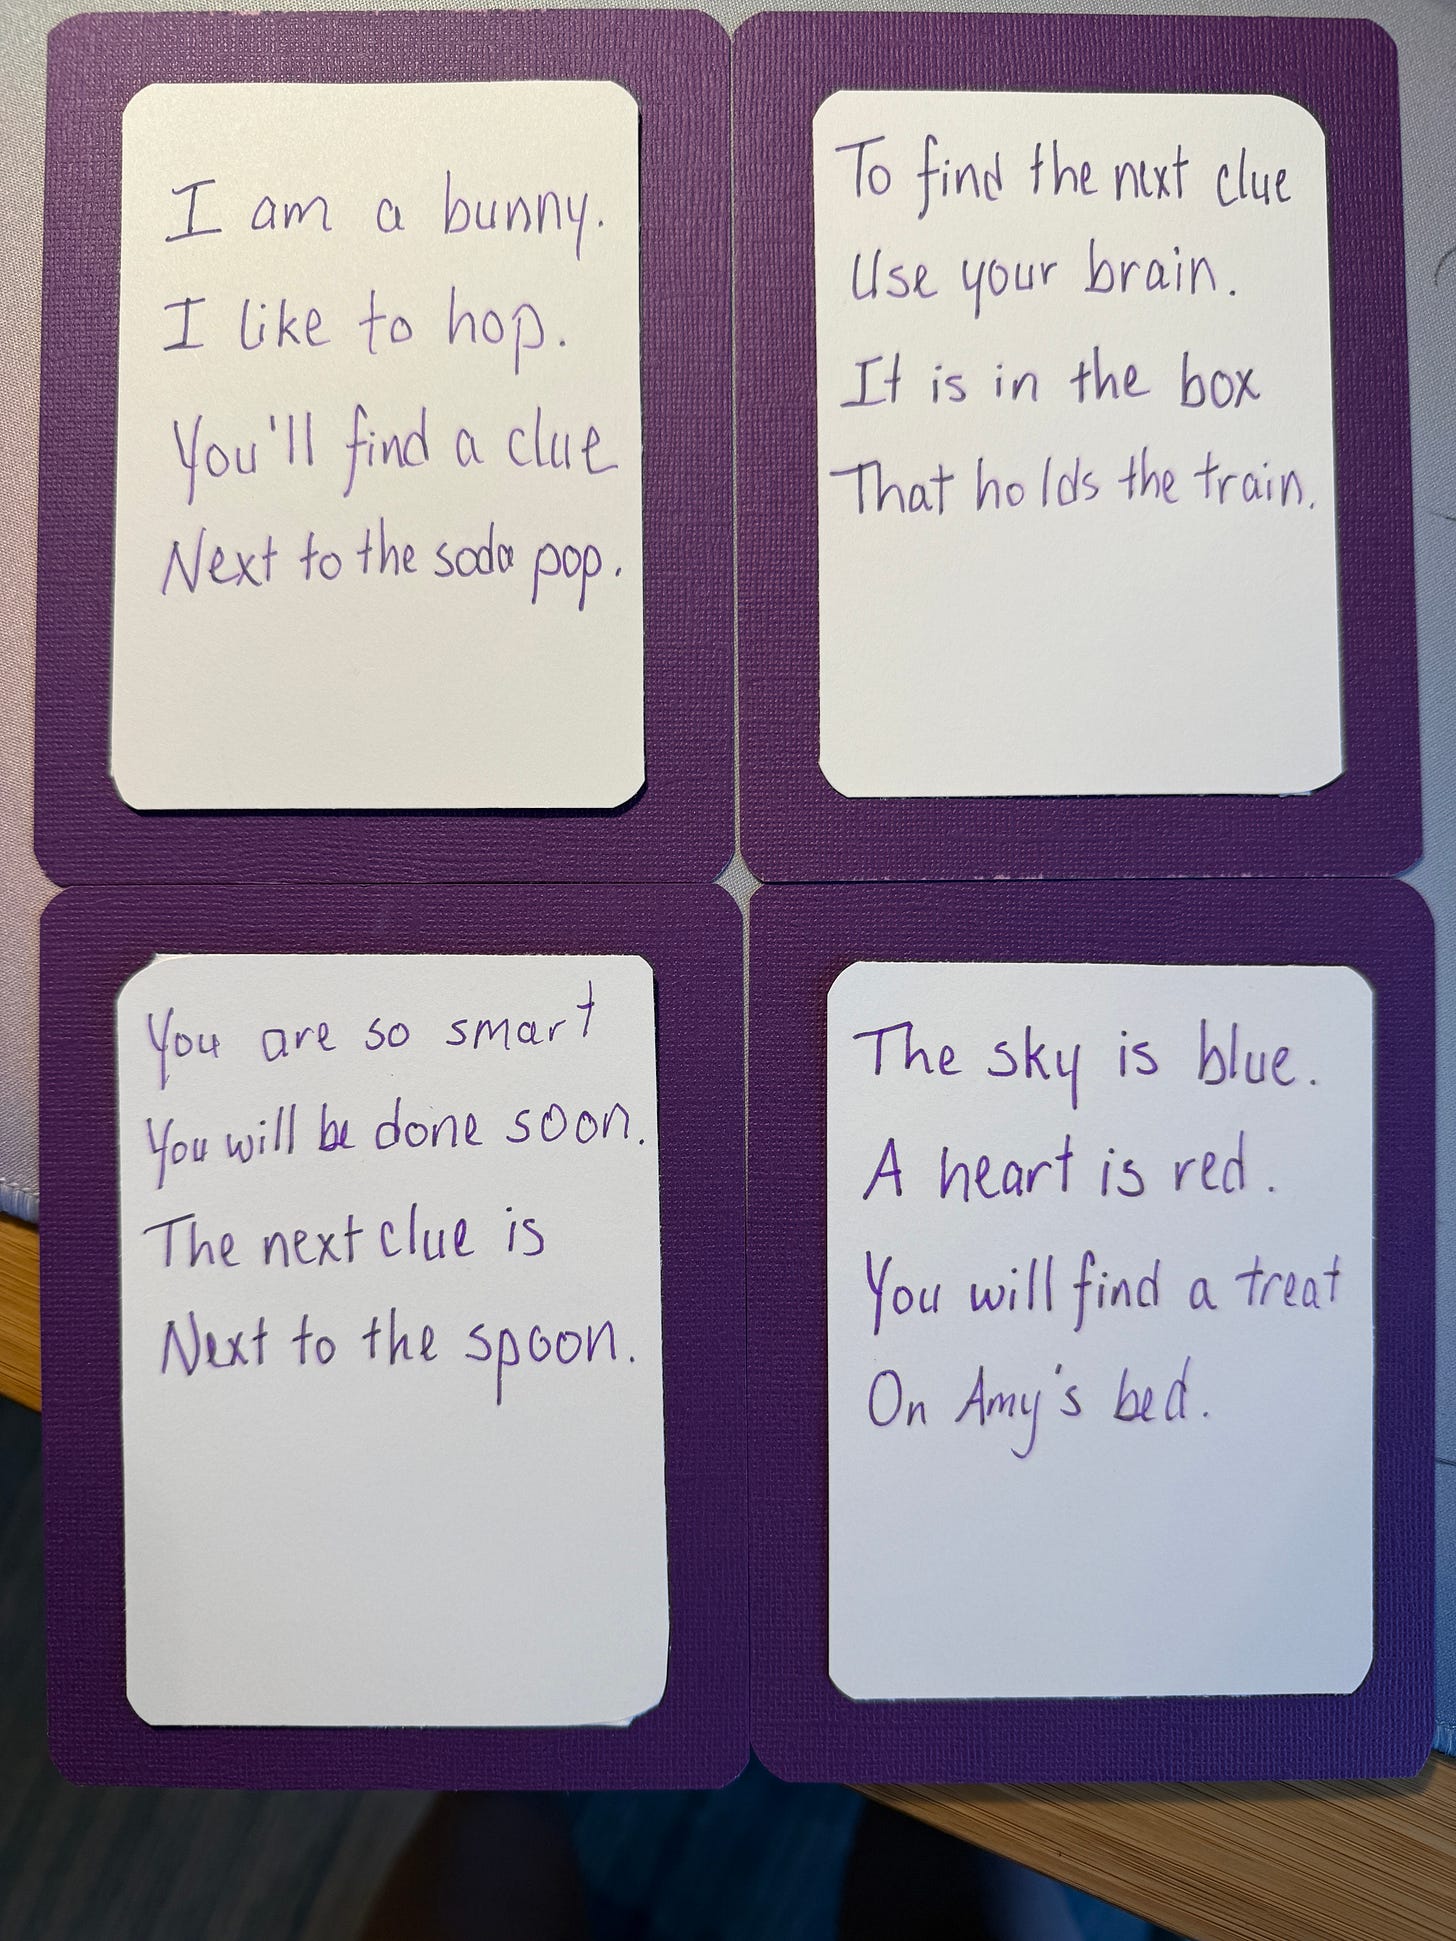 I am a bunny.
I like to hop.
You'll find a clue
Next to the soda pop.
To find the next clue
Use your brain.
It is in the box
That holds the train.
You are so smart
You will be done soon.
The next clue is
Next to the spoon.
The sky is blue.
A heart is red.
You will find a treat
On Amy's bed.